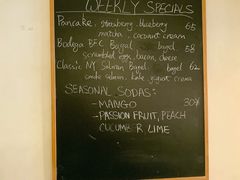 WEEKLY SPECIALS
Pancake, strawberry, blueberry 65
matcha, coconut cream
Bodega BEC Bagel, bagel 58
scrambled egg, bacon, cheese
Classic NY Salmon Bagel, bagel 62
smoke salmon, kale, yogurt crema
SEASONAL SODAS:
- MANGO 30K
- PASSION FRUIT, PEACH
CUCUMBER LIME